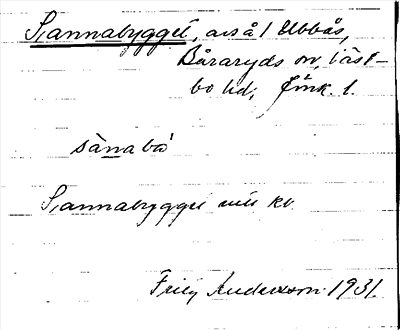 Sannabygget, avs å 1 Ubbås,
Båraryds sn, Väst-
bo hd, Jönk. l.
sànabỳ
Sannabygget
Frieg Andersson 1931.